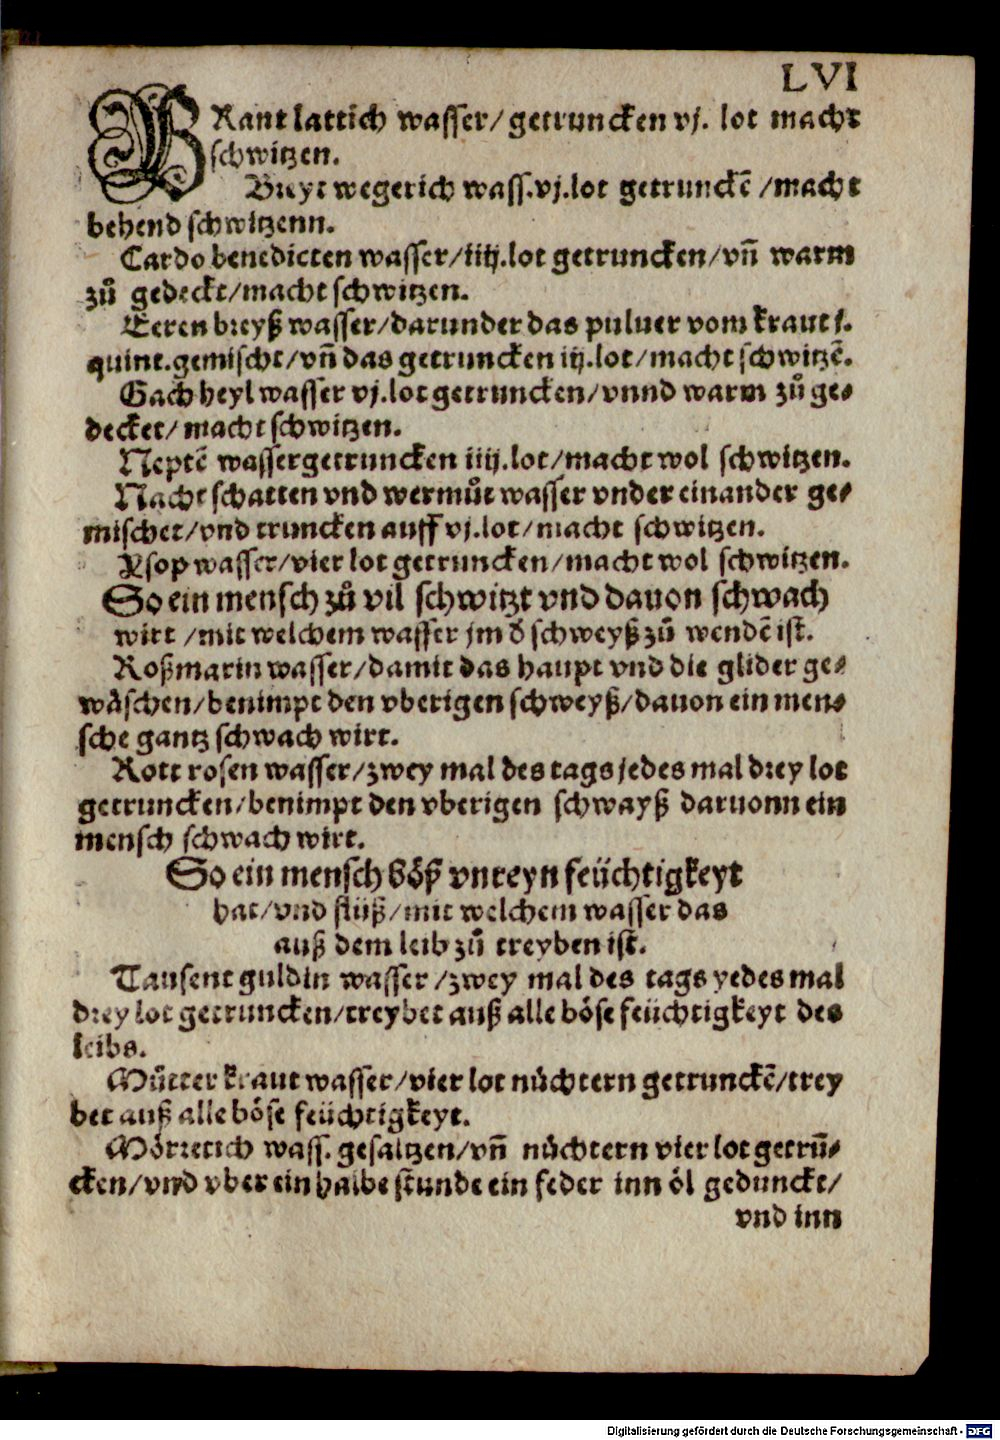 LVI
BRant lattich wasser/ getruncken vj. lot macht
schwitzen.
Breyt wegerich wass. vj. lot getrunckē /macht
behend schwitzenn.
Cardo benedicten wasser/iiij. lot getruncken/vñ warm
zů gedeckt/macht schwitzen.
Eeren breyß wasser/darunder das puluer vom kraut j.
quint. gemischt/vñ das getruncken iij. lot/macht schwitzē.
Gach heyl wasser vj. lot getruncken/vnnd warm zů ge⸗
decket/ macht schwitzen.
Neptē wasser getruncken iiij. lot/macht wol schwitzen.
Nacht schatten vnd wermůt wasser vnder einander ge⸗
mischet/vnd truncken auff vj. lot/macht schwitzen.
Ysop wasser/vier lot getruncken/macht wol schwitzen.
So ein mensch zů vil schwitzt vnd dauon schwach
wirt /mit welchem wasser jm d̄ schweyß zů wendē ist.
Roßmarin wasser/damit das haupt vnd die glider ge⸗
wäschen/benimpt den vberigen schweyß/dauon ein men⸗
sche gantz schwach wirt.
Rott rosen wasser/zwey mal des tags jedes mal drey lot
getruncken/benimpt den vberigen schwayß daruonn ein
mensch schwach wirt.
So ein mensch böß vnreyn feüchtigkeyt
hat/vnd flüß/mit welchem wasser das
auß dem leib zů treyben ist.
Tausent guldin wasser/zwey mal des tags yedes mal
drey lot getruncken/treybet auß alle böse feüchtigkeyt des
leibs.
Můtter kraut wasser/vier lot nüchtern getrunckē/trey
bet auß alle böse feüchtigkeyt.
Mörretich wass. gesaltzen/vñ nüchtern vier lot getrū⸗
cken/vnd vber ein halbe stunde ein feder inn öl geduncket/
vnd inn
Digitalisierung gefördert durch die Deutsche Forschungsgemeinschaft - DFG